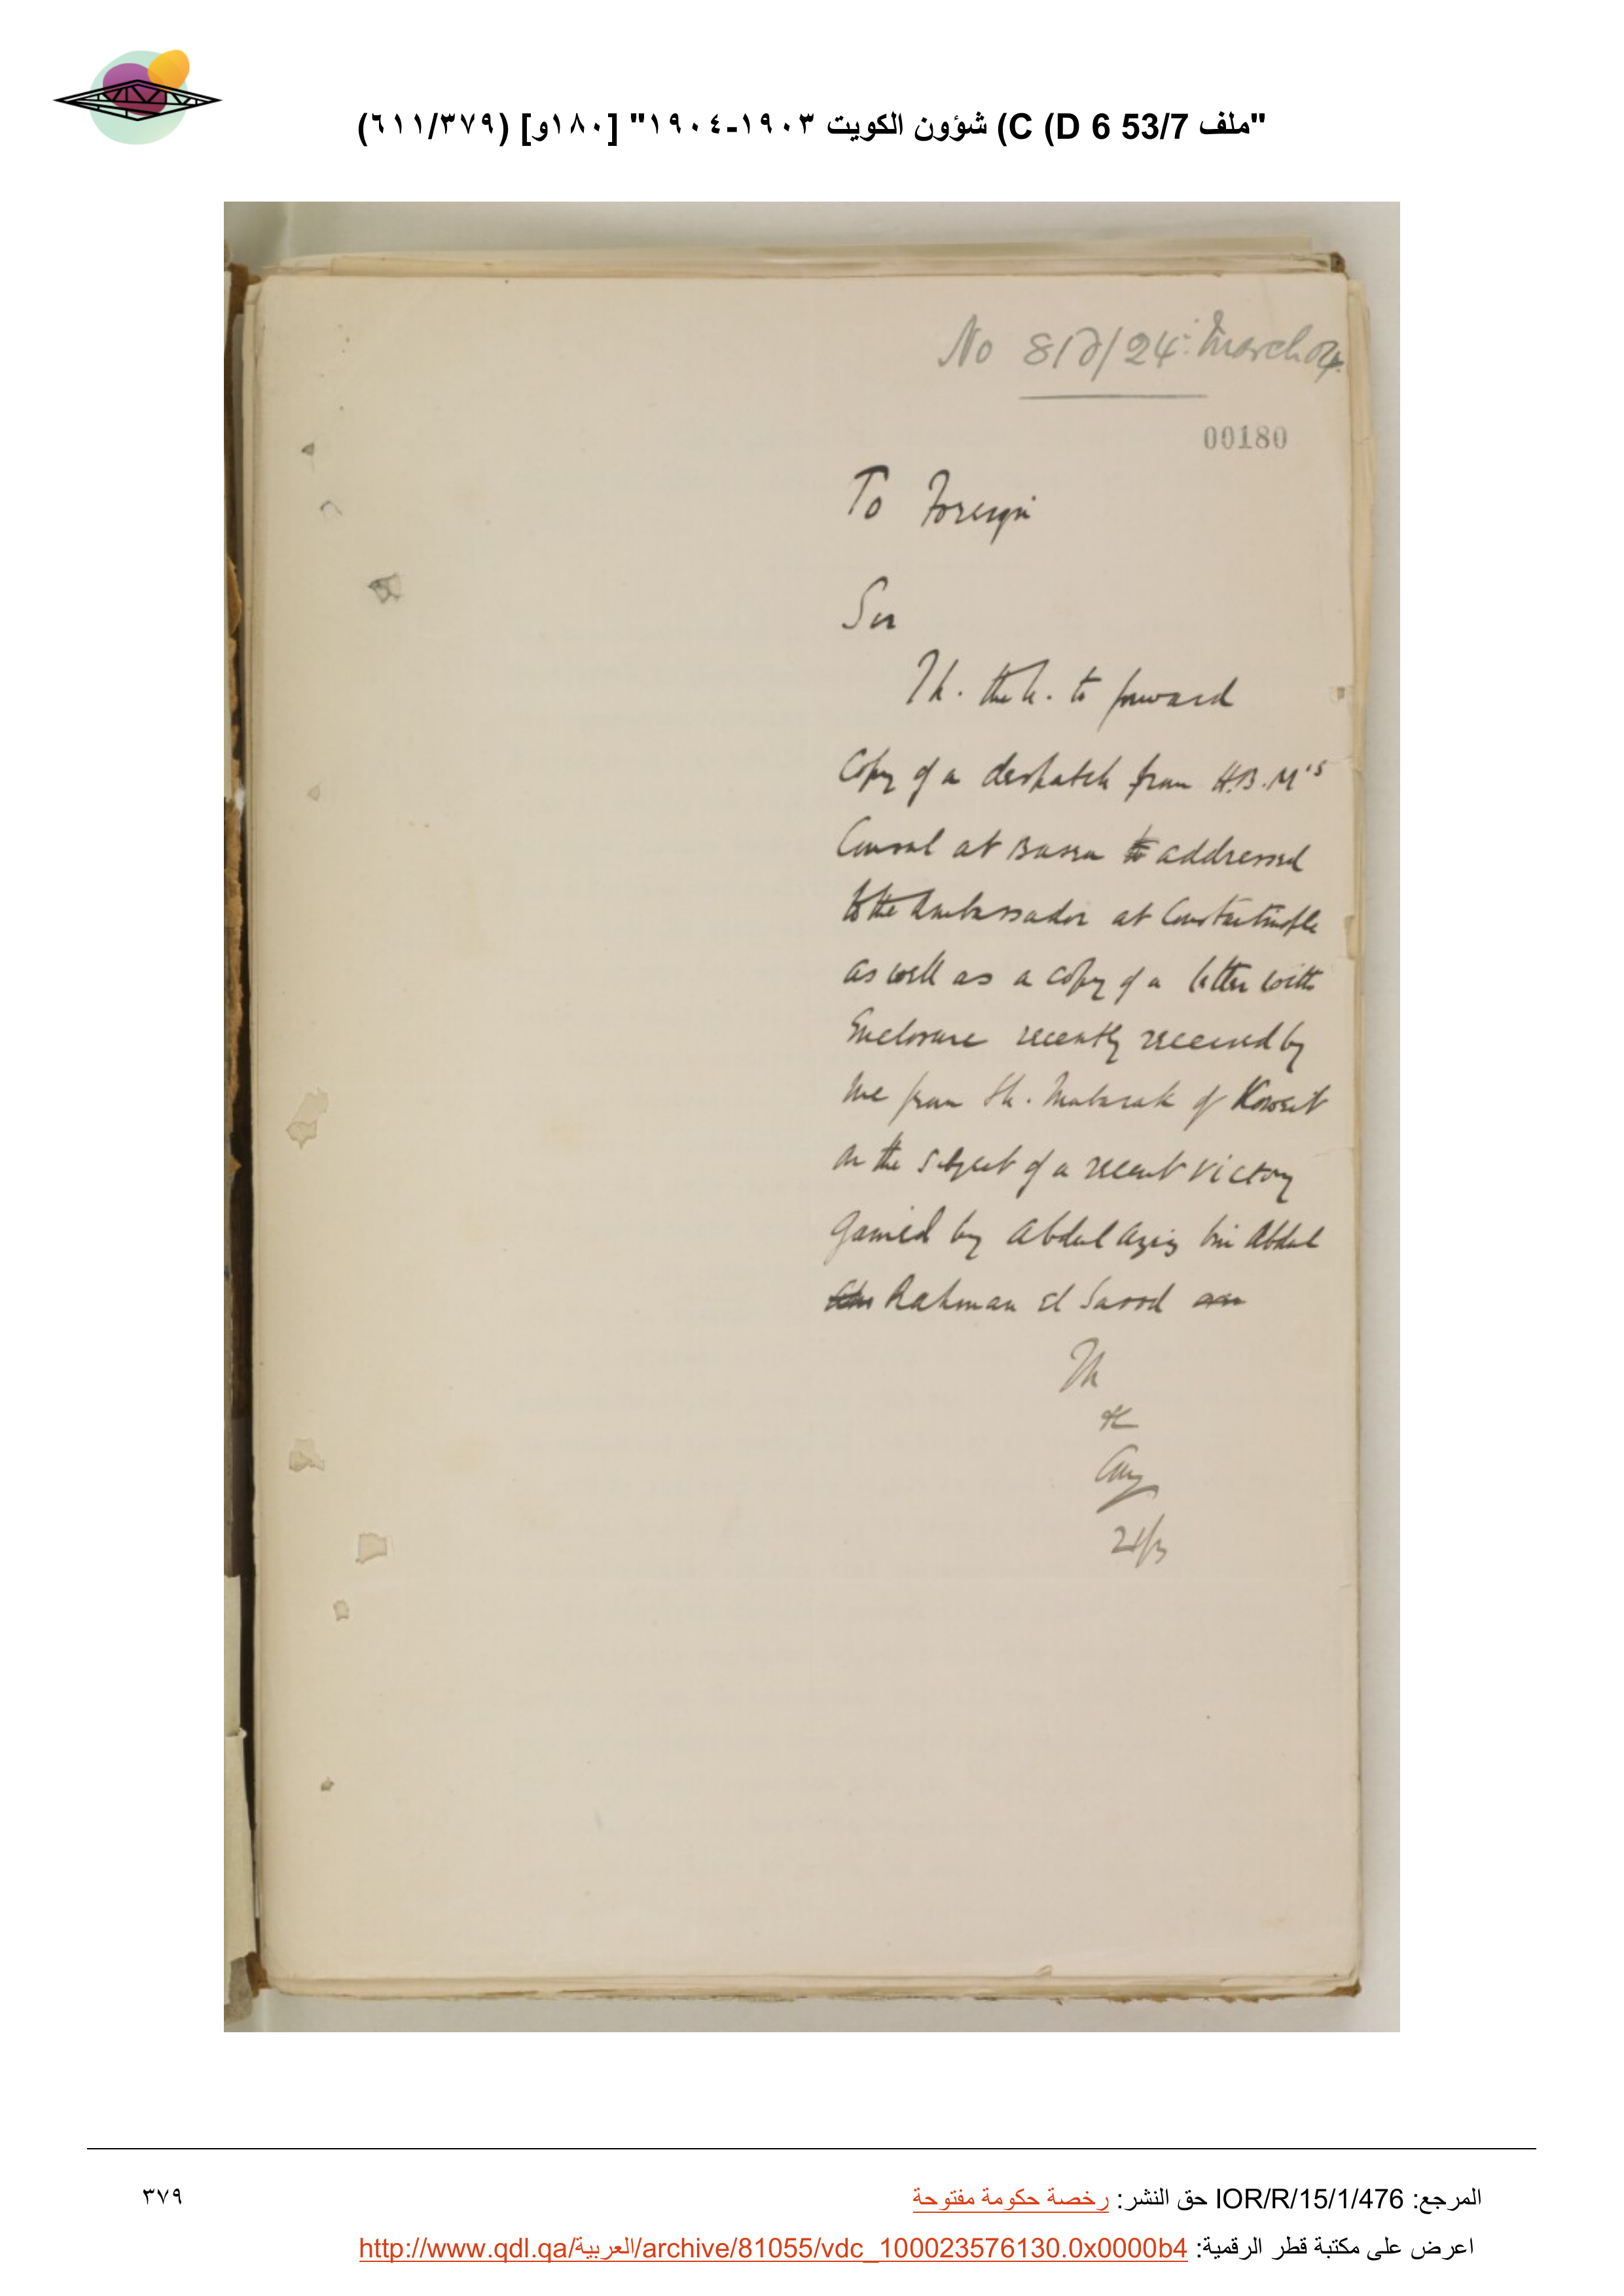 "ملف 53/7 C (D 6) شؤون الكويت ١٩٠٣-١٩٠٤" [١٨٠و] (٦١١/٣٧٩)
No 81 /24: March 04.
00180
To Foreign
Sir
I h. the h. to forward
Copy of a despatch from H.B.M's
Consul at Basra to addressed
to the Ambassador at Constantinople
as well as a copy of a letter with
Enclosure recently received by
me from Sh. Mubarak of Koweit
on the subject of a recent victory
gained by Abdul Aziz bin Abdul
Rahman el Saood
I h
&c
21/3
المرجع: IOR/R/15/1/476 حق النشر: رخصة حكومة مفتوحة
٣٧٩
اعرض على مكتبة قطر الرقمية: http://www.qdl.qa/العربية/archive/81055/vdc_100023576130.0x0000b4